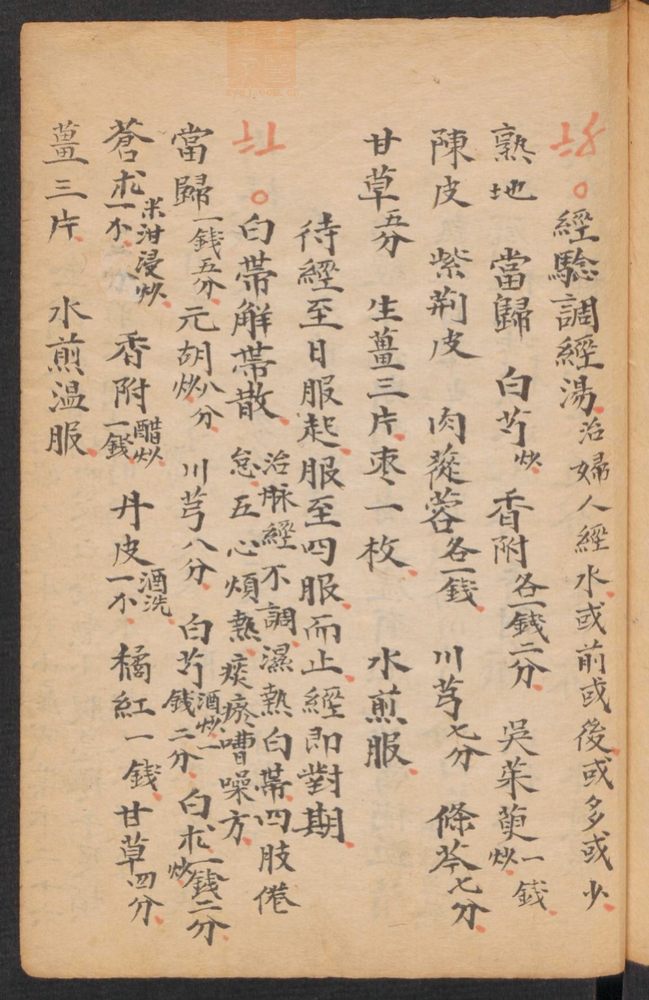 經驗調經湯治婦人經水或前或後或多或少
熟地 當歸 白芍炒 香附各一錢二分 吳茱萸炒一錢
陳皮 紫荊皮 肉蓯蓉各一錢 川芎七分 條芩七分
甘草五分 生薑三片 枣一枚 水煎服
待經至日服起服至四服而止經即對期
白帶解帶散治脉經不調濕熱白帶四肢倦
怠五心煩熱痰嘈噪方
當歸一錢五分 元胡炒八分 川芎八分 白芍酒炒一錢二分 白朮炒一錢二分
蒼朮米泔浸炒一不 香附醋炒一錢 丹皮酒洗一不 橘紅一錢 甘草四分
薑三片 水煎温服